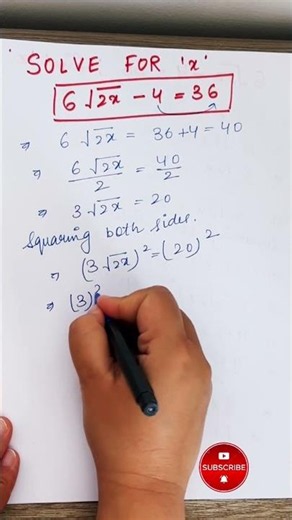 SOLVE FOR 'x'
6√2x - 4 = 36
⇒ 6√2x = 36+4 = 40
⇒ 6√2x/2 = 40/2
⇒ 3√2x = 20
Squaring both sides.
⇒ (3√2x)² = (20)²
⇒ (3)²
SUBSCRIBE